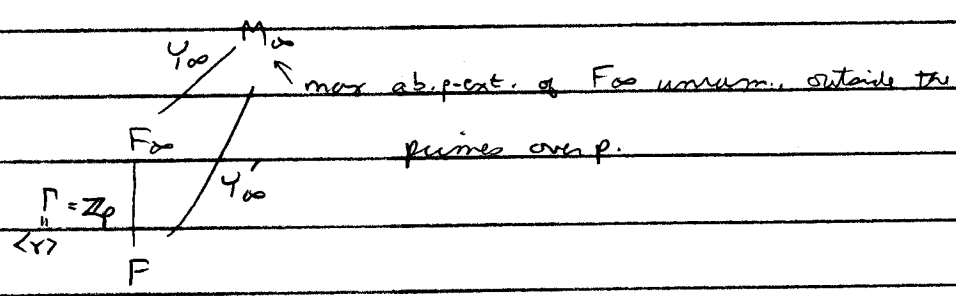 M∞
Y∞
max ab. p-ext. of F∞ unram. outside the
F∞ primes over p.
Y∞'
Γ = ℤp
"
<γ>
F